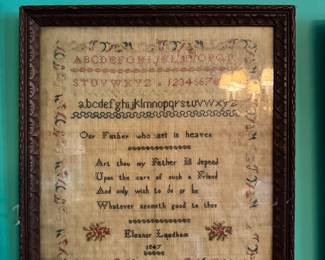 ABCDEFGHIJKLMNOPQR
STUVWXYZ . 12345678
abcdefghijklmnopqrstuvwxyz
Our Father who art in heaven
Art thou my Father I'll depend
Upon the care of such a Friend
And only wish to do or be
Whatever seemeth good to thee
Eleanor Landham
1847